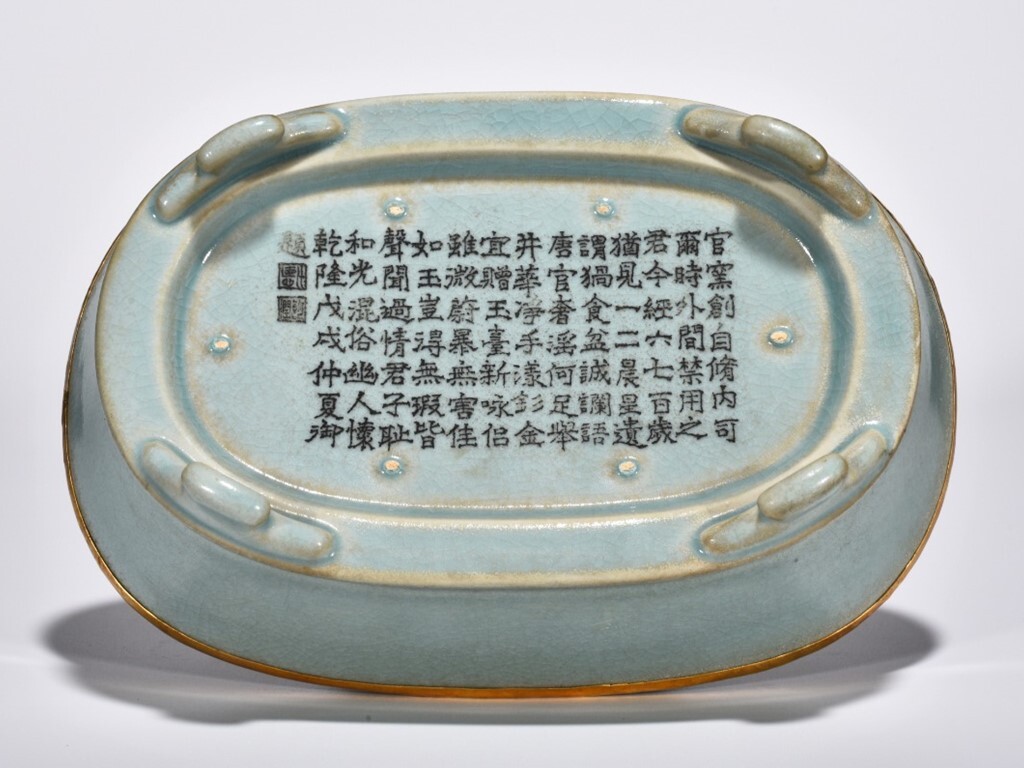 官窯創自脩內司
爾時外間禁用之
君今經六七百歲
猶見一二晨星遺
謂猧食盆誠讕語
唐官奢淫何足舉
井華淨手漾金
宜贈玉臺新咏侶
雖微蔚暴無害佳
如玉豈得無瑕皆
聲聞過情君子恥
和光混俗幽人懷
乾隆戊戌仲夏御
題